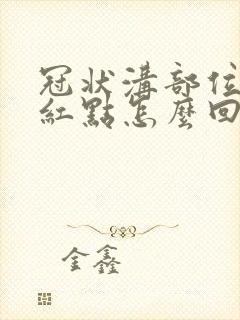 冠狀溝部位
紅點怎麼回
金鑫